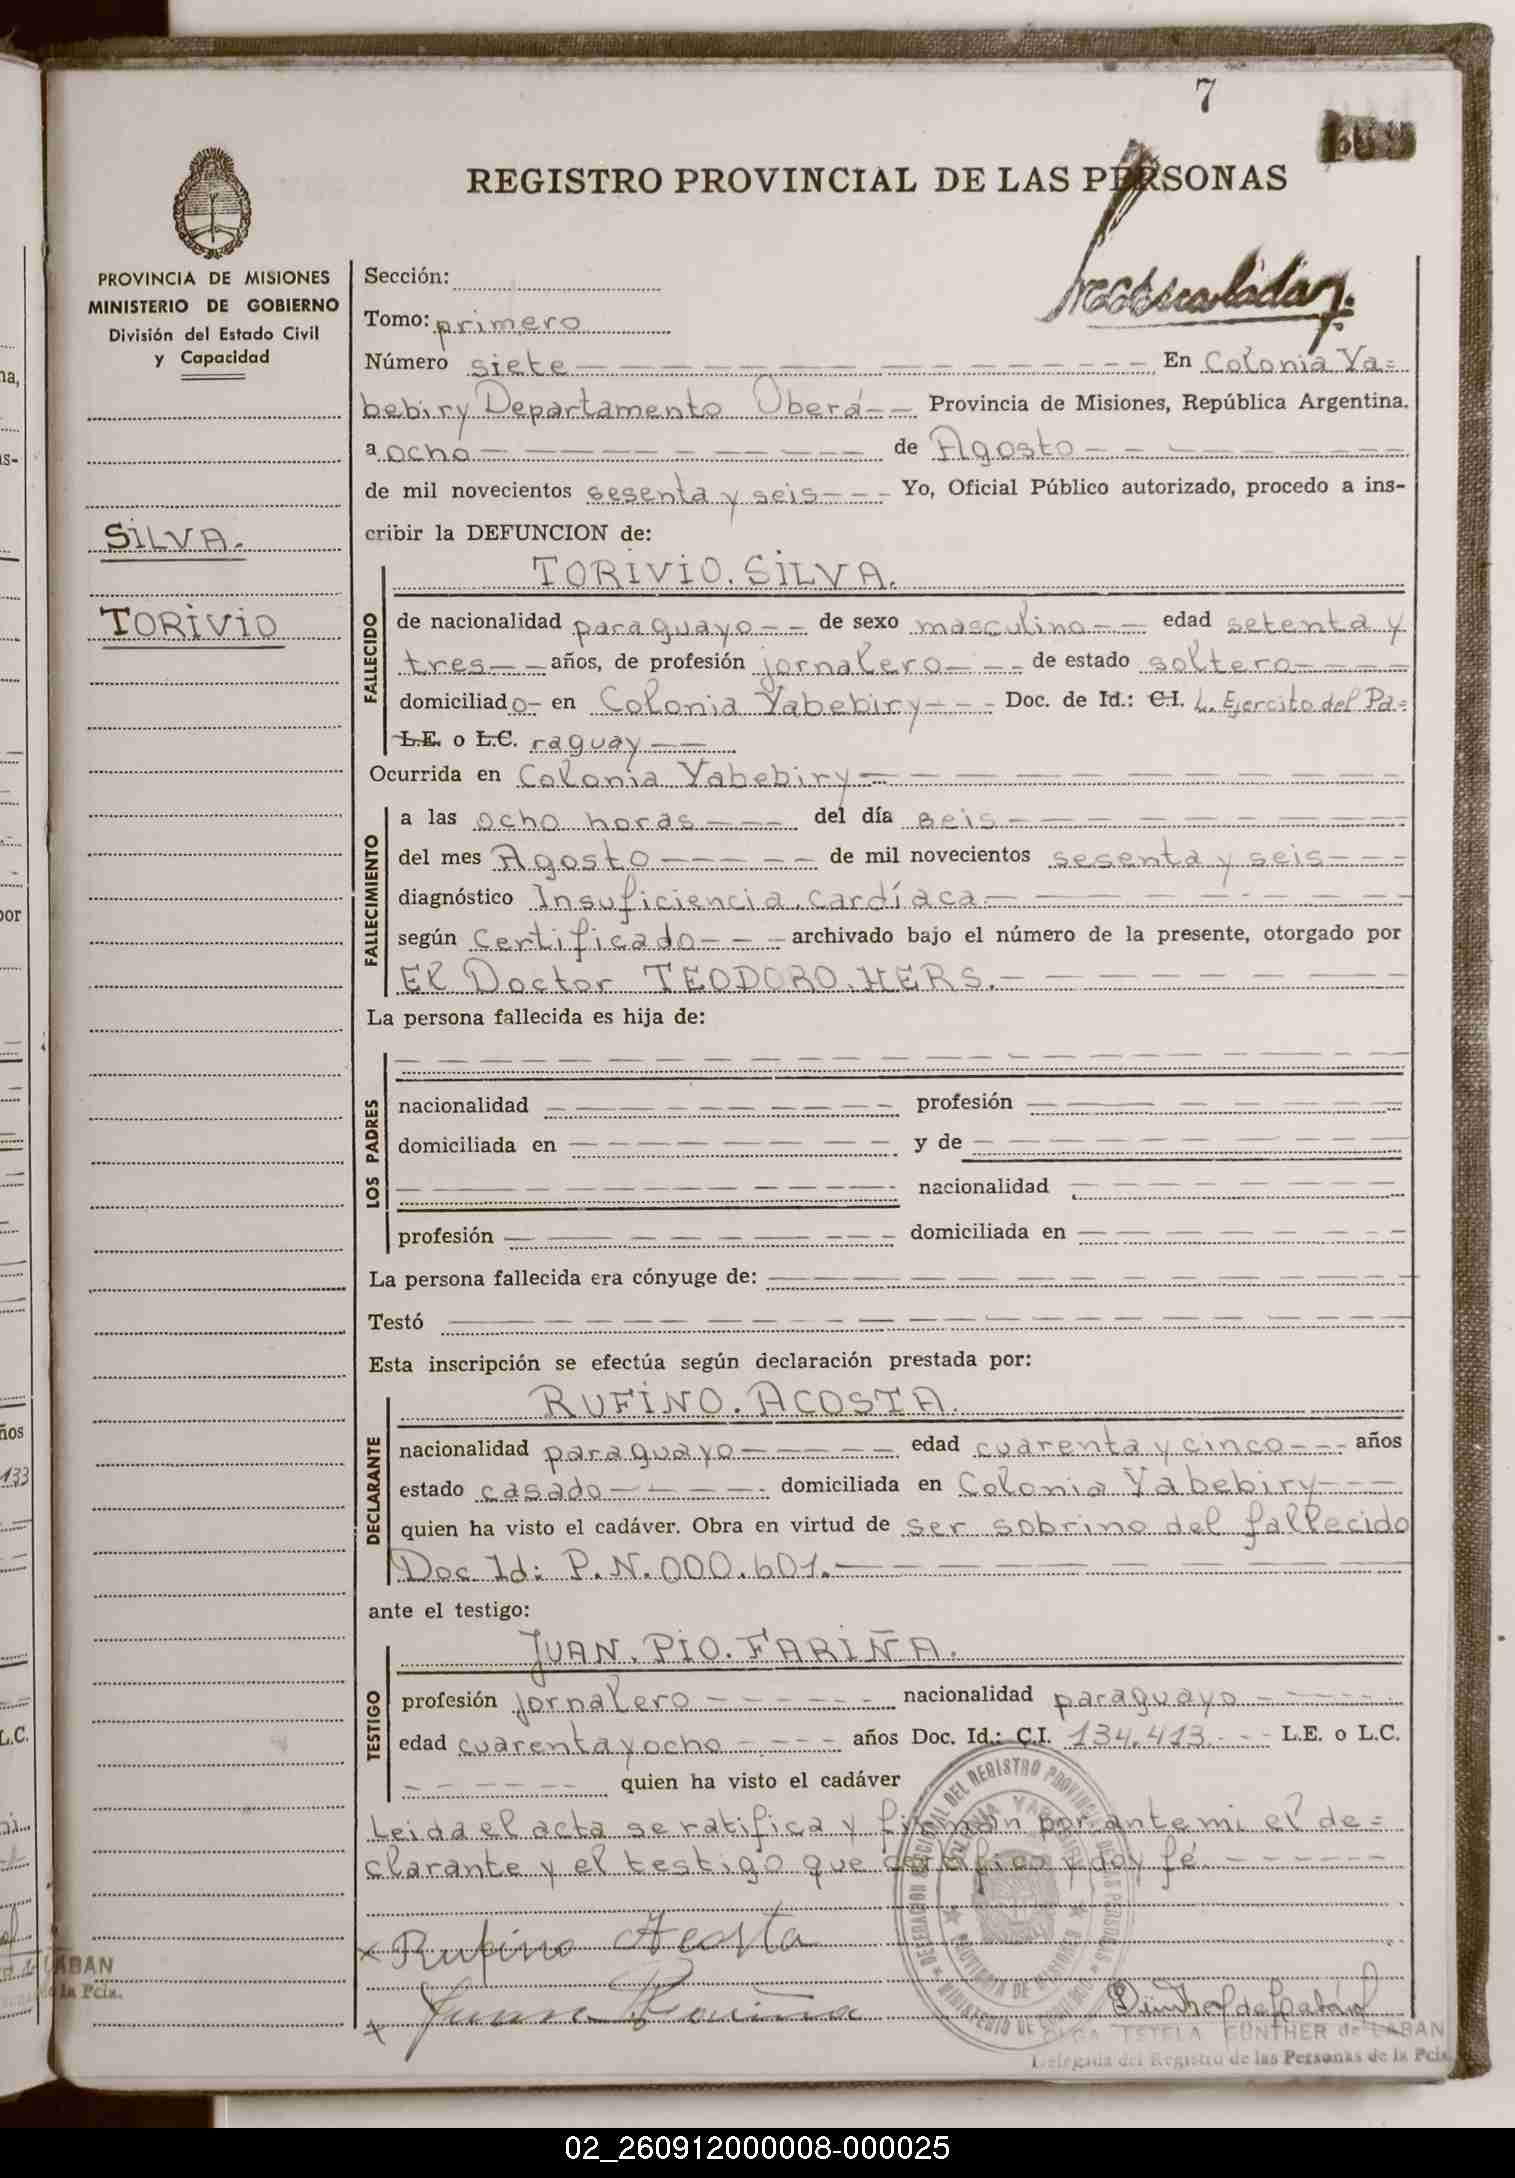 7
REGISTRO PROVINCIAL DE LAS PERSONAS
PROVINCIA DE MISIONES
MINISTERIO DE GOBIERNO
División del Estado Civil
y Capacidad
SILVA.
TORIVIO
Sección:
Tomo: primero
Número siete En Colonia Ya=
bebiry Departamento Oberá Provincia de Misiones, República Argentina.
a ocho de Agosto
de mil novecientos sesenta y seis Yo, Oficial Público autorizado, procedo a ins-
cribir la DEFUNCION de:
TORIVIO. SILVA.
FALLECIDO
de nacionalidad paraguayo de sexo masculino edad setenta y
tres años, de profesión jornalero de estado soltero
domiciliado en Colonia Yabebiry Doc. de Id.: C.I. L. Ejercito del Pa=
L.E. o L.C. raguay
Ocurrida en Colonia Yabebiry
FALLECIMIENTO
a las ocho horas del día seis
del mes Agosto de mil novecientos sesenta y seis
diagnóstico Insuficiencia, cardíaca
según Certificado archivado bajo el número de la presente, otorgado por
El Doctor TEODORO. HERS.
La persona fallecida es hija de:
LOS PADRES
nacionalidad profesión
domiciliada en y de
nacionalidad
profesión domiciliada en
La persona fallecida era cónyuge de:
Testó
Esta inscripción se efectúa según declaración prestada por:
RUFINO. ACOSTA.
DECLARANTE
nacionalidad paraguayo edad cuarenta y cinco años
estado casado domiciliada en Colonia Yabebiry
quien ha visto el cadáver. Obra en virtud de ser sobrino del fallecido
Doc. Id: P.N. 000.601.
ante el testigo:
JUAN. PIO. FARIÑA.
TESTIGO
profesión jornalero nacionalidad paraguayo
edad cuarenta y ocho años Doc. Id.: C.I. 134.413. L.E. o L.C.
quien ha visto el cadáver
Leida el acta se ratifica y firman por ante mi el de=
clarante y el testigo que certifico y doy fé.
Rufino Acosta
Juan Fariña
Günther de Labán
OLGA ESTELA GÜNTHER de LABAN
Delegada del Registro de las Personas de la Pcia.
02_260912000008-000025